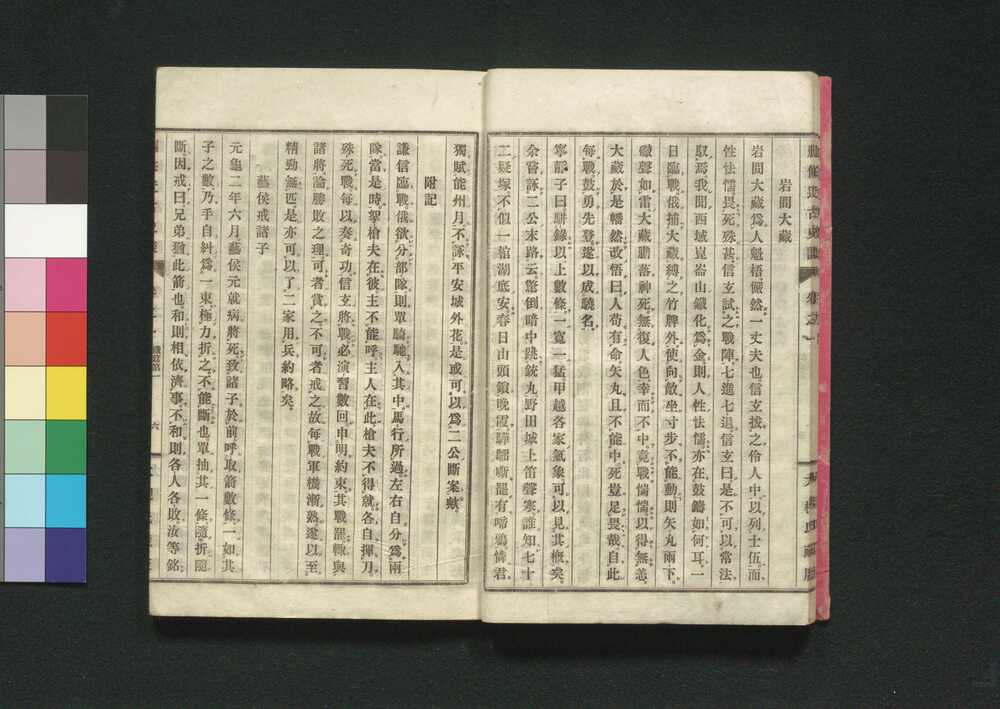 岩間大藏
岩間大藏爲人魁梧儼然一丈夫也信玄拔之伶人中以列士伍而
性怯懦畏死殊甚信玄試之戰陣七進七退信玄曰是不可以常法
馭焉我聞西域崑崙山鐵化爲金則人性怯懦亦在鼓鑄如何耳一
日臨戰俄捕大藏縛之竹牌外使向敵坐寸步不能動則矢丸雨下
礮聲如雷大藏膽落神死無復人色幸而不中竟戰惴惴以得無恙
大藏於是幡然改悟曰人苟有命矢丸且不能中死豈足畏哉自此
每戰鼓勇先登遂以成驍名
寧靜子曰騈錄以上數條一寬一猛甲越各家氣象可以見其槪矣
余嘗詠二公末路云驚倒暗中跳銃丸野田城上笛聲寒誰知七十
二疑塚不似一棺湖底安春日山頭鎖晚霞驊騮嘶罷有啼鴉憐君
獨賦能州月不詠平安城外花是或可以爲二公斷案歟
附記
謙信臨戰俄欲分部隊則單騎馳入其中馬行所過左右自分爲兩
隊當是時挐槍夫在彼主不能呼主人在此槍夫不得就各自揮刀
殊死戰每以奏奇功信玄將戰必演習數回申明約束其戰罷輙與
諸將論勝敗之理可者賞之不可者戒之故每戰軍機漸熟遂以至
精勁無匹是亦可以了二家用兵約略矣
藝侯戒諸子
元龜二年六月藝侯元就病將死致諸子於前呼取箭數條一如其
子之數乃手自糾爲一束極力折之不能斷也單抽其一條隨折隨
斷因戒曰兄弟猶此箭也和則相依濟事不和則各人各敗汝等銘
六